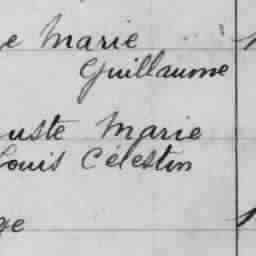 e Marie
Guillaume
uste Marie
Louis Célestin
ge